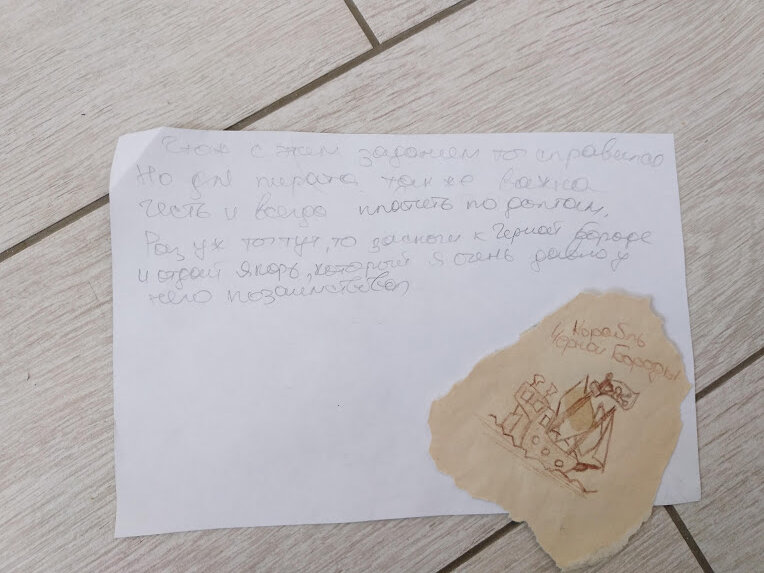 И с этим заданием ты справился
Но для пирата также важна
честь и всегда платить по долгам,
Раз уж ты тут, то загляни к Черной Бороде
и отдай якорь, который я очень давно у
него позаимствовал
Корабль
Черной Бороды